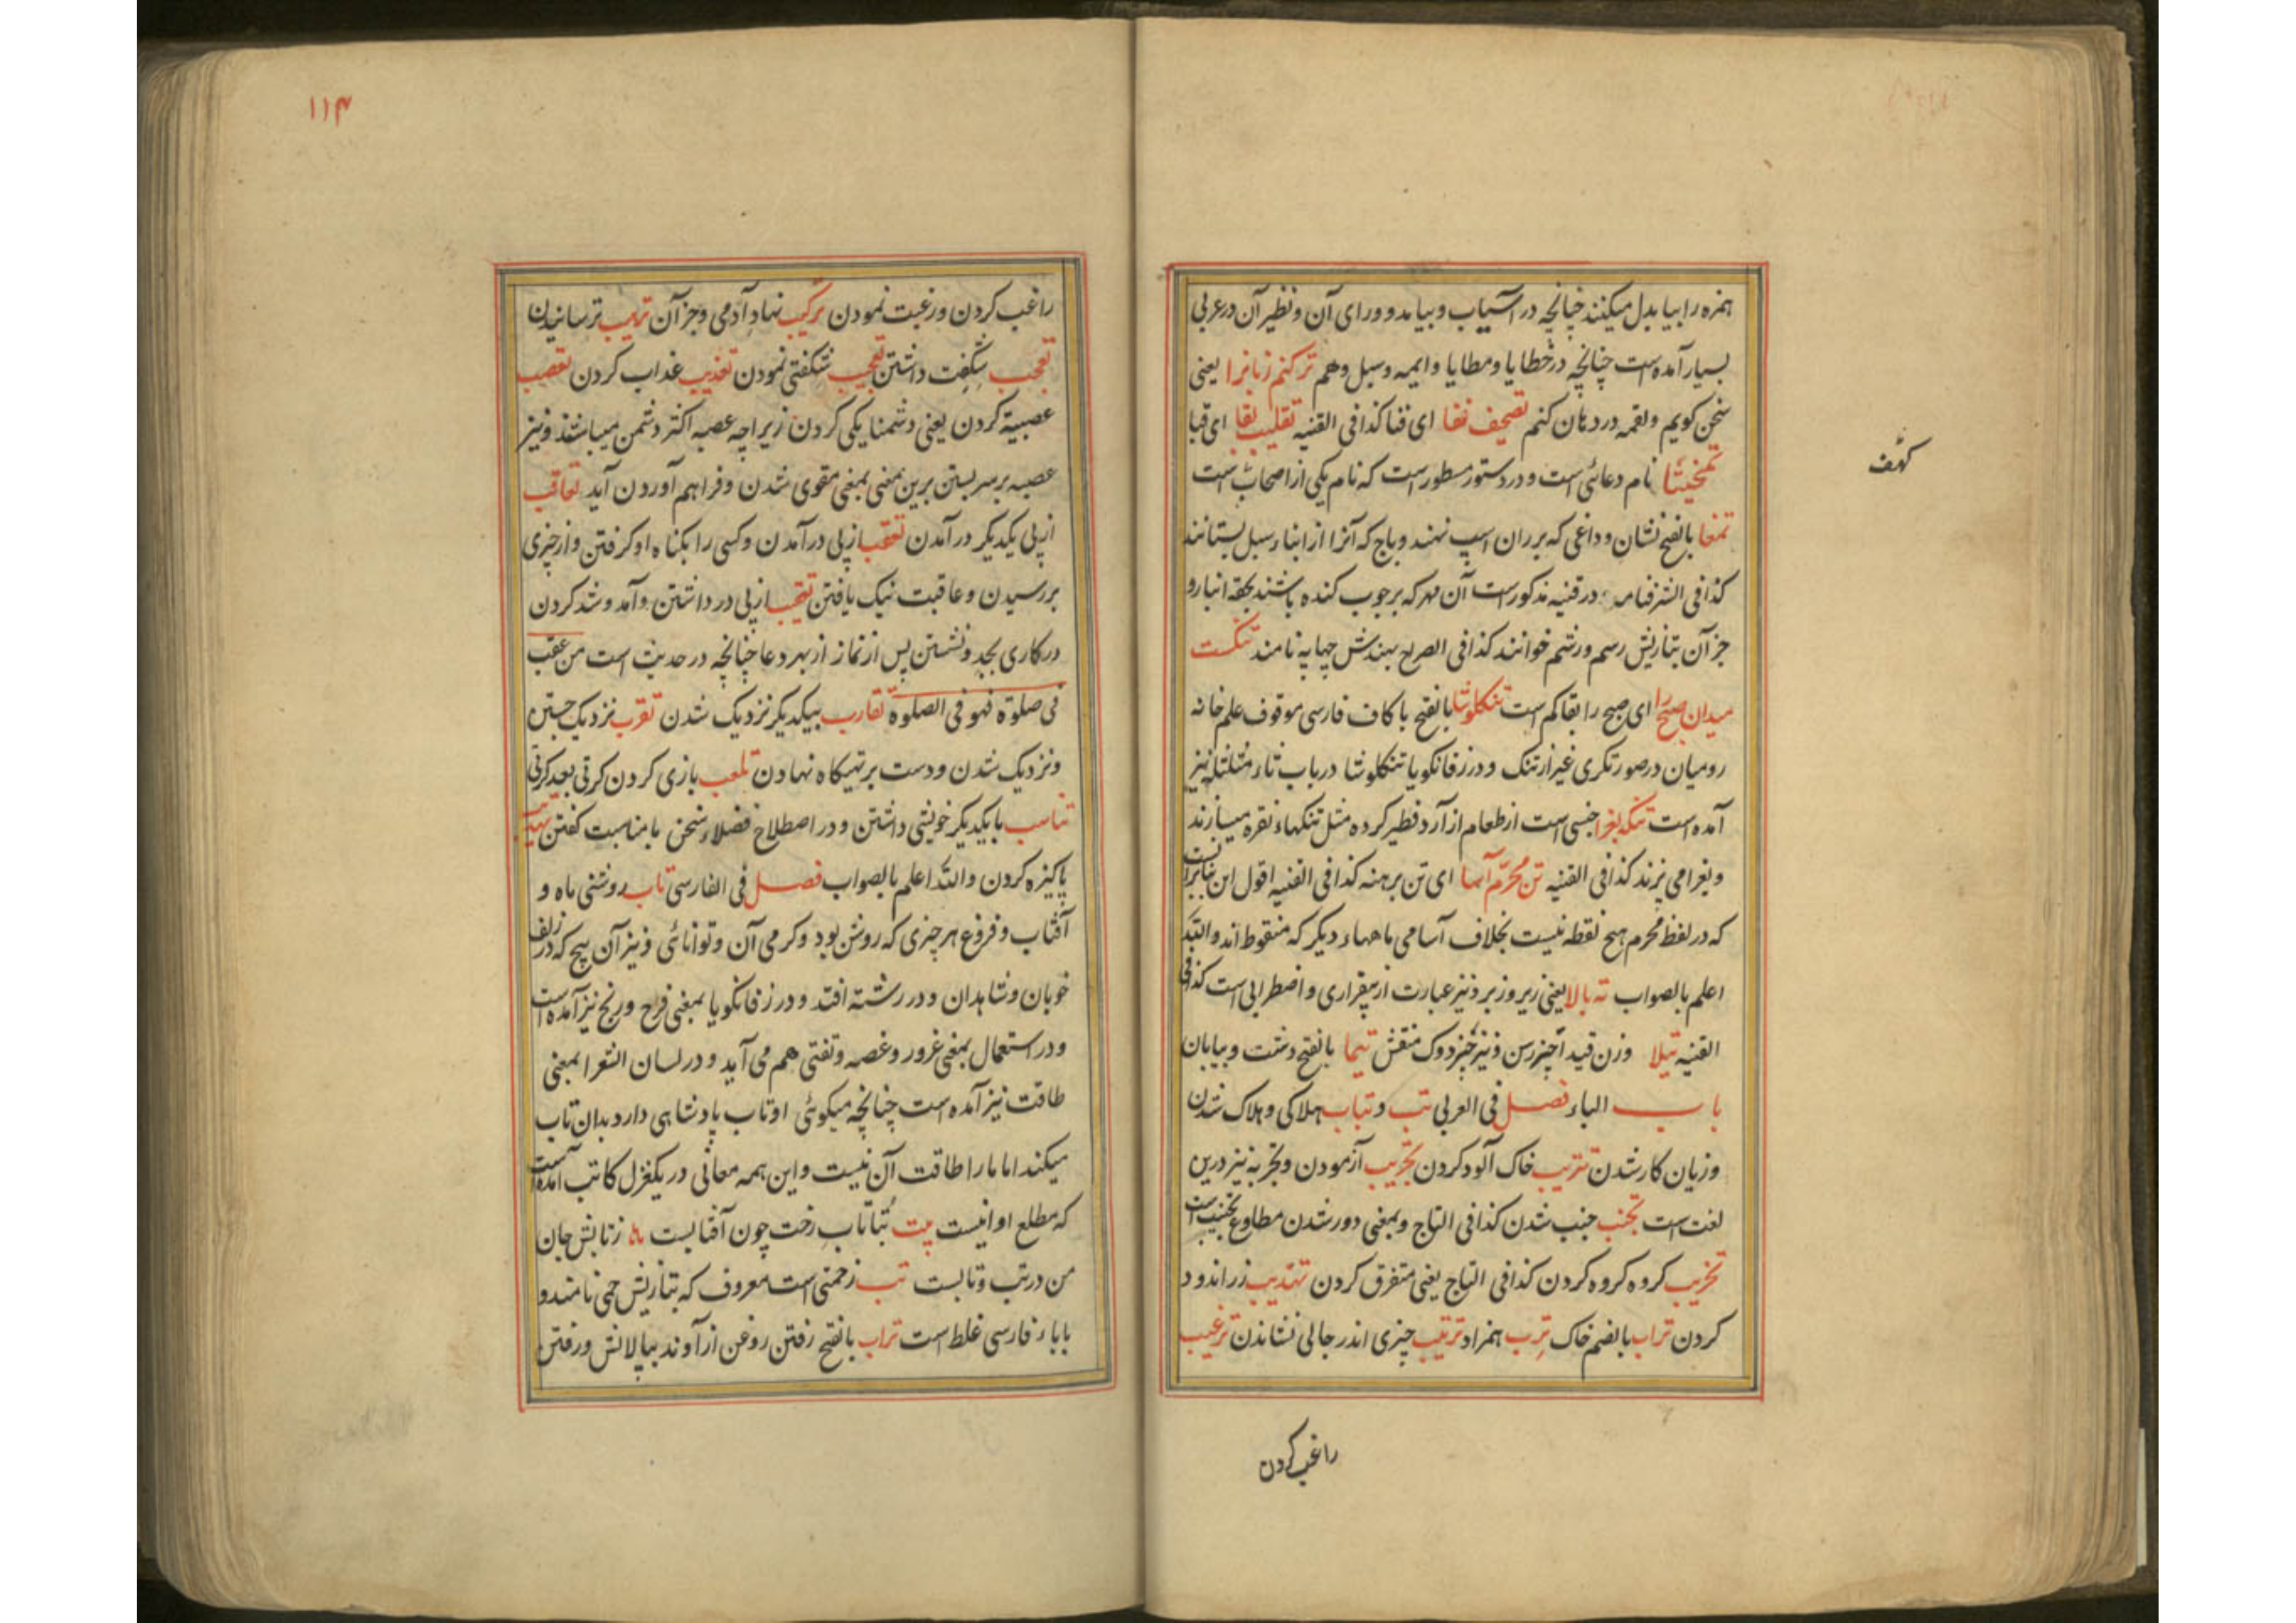 همزه را بیا بدل میکنند چنانچه در آسیاب و بیامد و ورای آن و نظیر آن در عربی
بسیار آمده است چنانچه در خطایا و مطایا و ایمه وسیل و هم ترکنم زبانرا یعنی
سخن کویم و لقمه در دهان کنم تصحیف نقا ای فنا کذا فی القنیه تقلیب بقا ای قبا
تمخیثا نام دعائی است و در دستور مسطور است که نام یکی از اصحاب است
کهف
تمغا بالفتح نشان و داغی که بر ران اسپ نهند و باج که آنرا از ابناء سبیل بستانند
کذا فی الشرفنامه و در قنیه مذکور است آن مهر که بر چوب کنده باشند بجهة انبار و
جز آن بتازیش رسم و رشم خوانند کذا فی الصراح بهندش چهاپه نامند تنکست
میدان صبح را ای صبح را بقا کم است تنکلوشا بالفتح با کاف فارسی موقوف علم خانه
رومیان در صورتکری غیر ارتنک و در زفانکویا تنکلوشا در باب ثاء مثلثه نیز
آمده است تنکه بغرا جنسی است از طعام از آرد فطیر کرده مثل تنکهاء نقره میسازند
و بغرا می پزند کذا فی القنیه تن محرّم آسا ای تن برهنه کذا فی القنیه اقول این بنابرانست
که در لفظ محرم هیچ نقطه نیست بخلاف آسامی ماههاء دیکر که منقوط اند والله
اعلم بالصواب ته بالا یعنی زیر و زبر و نیز عبارت از بیقراری و اضطرابی است کذا فی
القنیه تیلا وزن قید آخر رسن و نیز دوک منقش تیما بالفتح دشت و بیابان
باب الباء فصل فی العربی تب و تباب هلاکی و هلاک شدن
و زیان کار شدن تتریب خاک آلود کردن تجریب آزمودن و تجربه نیز درین
لغت است تجنب جنب شدن کذا فی التاج و بمعنی دور شدن مطاوع تجنیب است
تخریب کروه کروه کردن کذا فی التاج یعنی متفرق کردن تهذیب زر اندود
کردن تراب بالضم خاک ترب همزاد ترتیب چیزی اندر جالی نشاندن ترغیب
راغب کردن
۱۱۴
راغب کردن و رغبت نمودن ترکیب نهاد آدمی و جز آن ترهیب ترسانیدن
تعجب شکفت داشتن تعجیب شکفتی نمودن تعذیب عذاب کردن تعصب
عصبیة کردن یعنی دشمنایکی کردن زیراچه عصبه اکثر دشمن میباشند و نیز
عصبه بر سر بستن برین معنی بمعنی مقوی شدن و فراهم آوردن آید تعاقب
از پی یکدیکر در آمدن تعقب از پی در آمدن و کسی را بکناه او کرفتن و از چیزی
بررسیدن و عاقبت نیک یافتن تعقیب از پی در داشتن و آمد و شد کردن
در کاری بجد و نشستن پس از نماز از بهر دعا چنانچه در حدیث است من عقب
فی صلوة فهو فی الصلوة تقارب بیکدیکر نزدیک شدن تقرب نزدیک جستن
و نزدیک شدن و دست بر تهیکاه نهادن تلعب بازی کردن کرتی بعد کرتی
تناسب با یکدیکر خویشی داشتن و در اصطلاح فضلاء سخن بامناسبت کفتن تهذیب
پاکیزه کردن والله اعلم بالصواب فصل فی الفارسی تاب روشنی ماه و
آفتاب و فروغ هر چیزی که روشن بود و کرمی آن و توانائی و نیز آن پیچ که در زلف
خوبان و شاهدان و در رشته افتد و در زفانکویا بمعنی فرح و رنج نیز آمده است
و در استعمال بمعنی غرور و غصه و تفتی هم می آید و در لسان الشعرا بمعنی
طاقت نیز آمده است چنانچه میکوئی او تاب پادشاهی دارد بدان تاب
میکند اما ما را طاقت آن نیست و این همه معانی در یکغزل کاتب آمده است
که مطلع او اینست بیت بُتا تاب رخت چون آفتابست زتابش جان
من در تب و تابست تب زحمتی است معروف که بتازیش حمی نامند و
باباء فارسی غلط است تراب بالفتح رفتن روغن از آوند بپالایش و رفتن